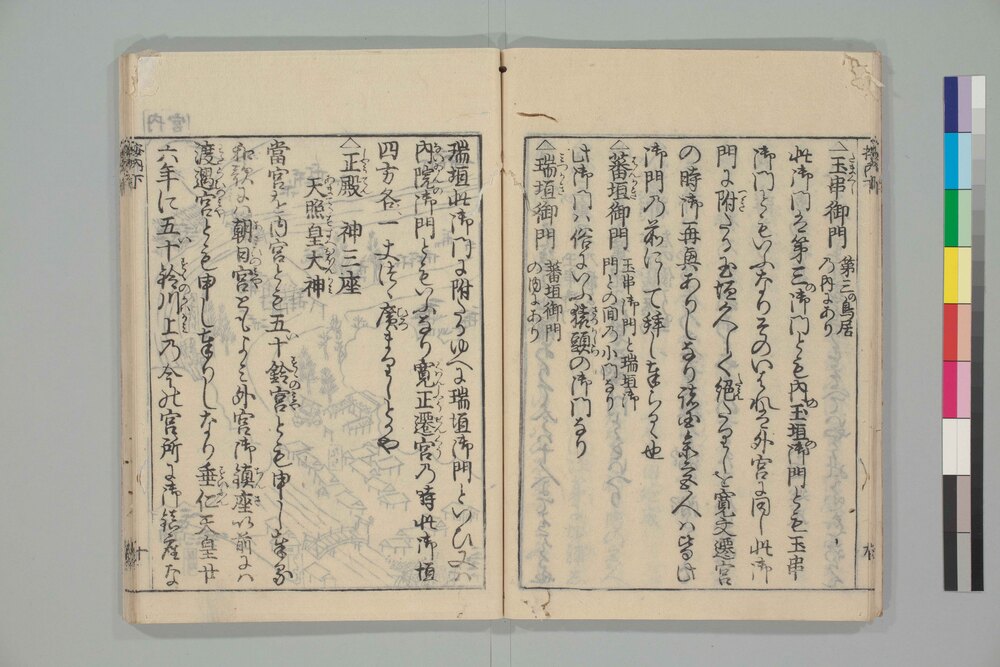 玉串御門 第三の鳥居
の内にあり
此御門を第三御門とも内玉垣御門とも玉串
御門ともいふなりそのいはれは外宮に同し此御
門に附たる玉垣久しく絶たりしを寛文遷宮
の時御再興ありしなり諸国参宮人は皆此
御門の前にして拝し奉らるゝ也
蕃垣御門 玉串御門と瑞垣御
門との間の小門なり
此御門は俗にいふ猿頭の御門なり
瑞垣御門 蕃垣御門
の内にあり
瑞垣此御門に附たるゆへに瑞垣御門といひ又は
内院御門ともいふなり寛正遷宮の時此御垣
四方各一丈つゝ廣まりしとかや
正殿 神三座
天照皇大神
當宮を内宮とも五十鈴宮とも申し奉る
和歌には朝日宮ともよミ外宮御鎮座以前には
渡遇宮とも申し奉りしなり垂仁天皇廿
六年に五十鈴川上の今の宮所に御鎮座な